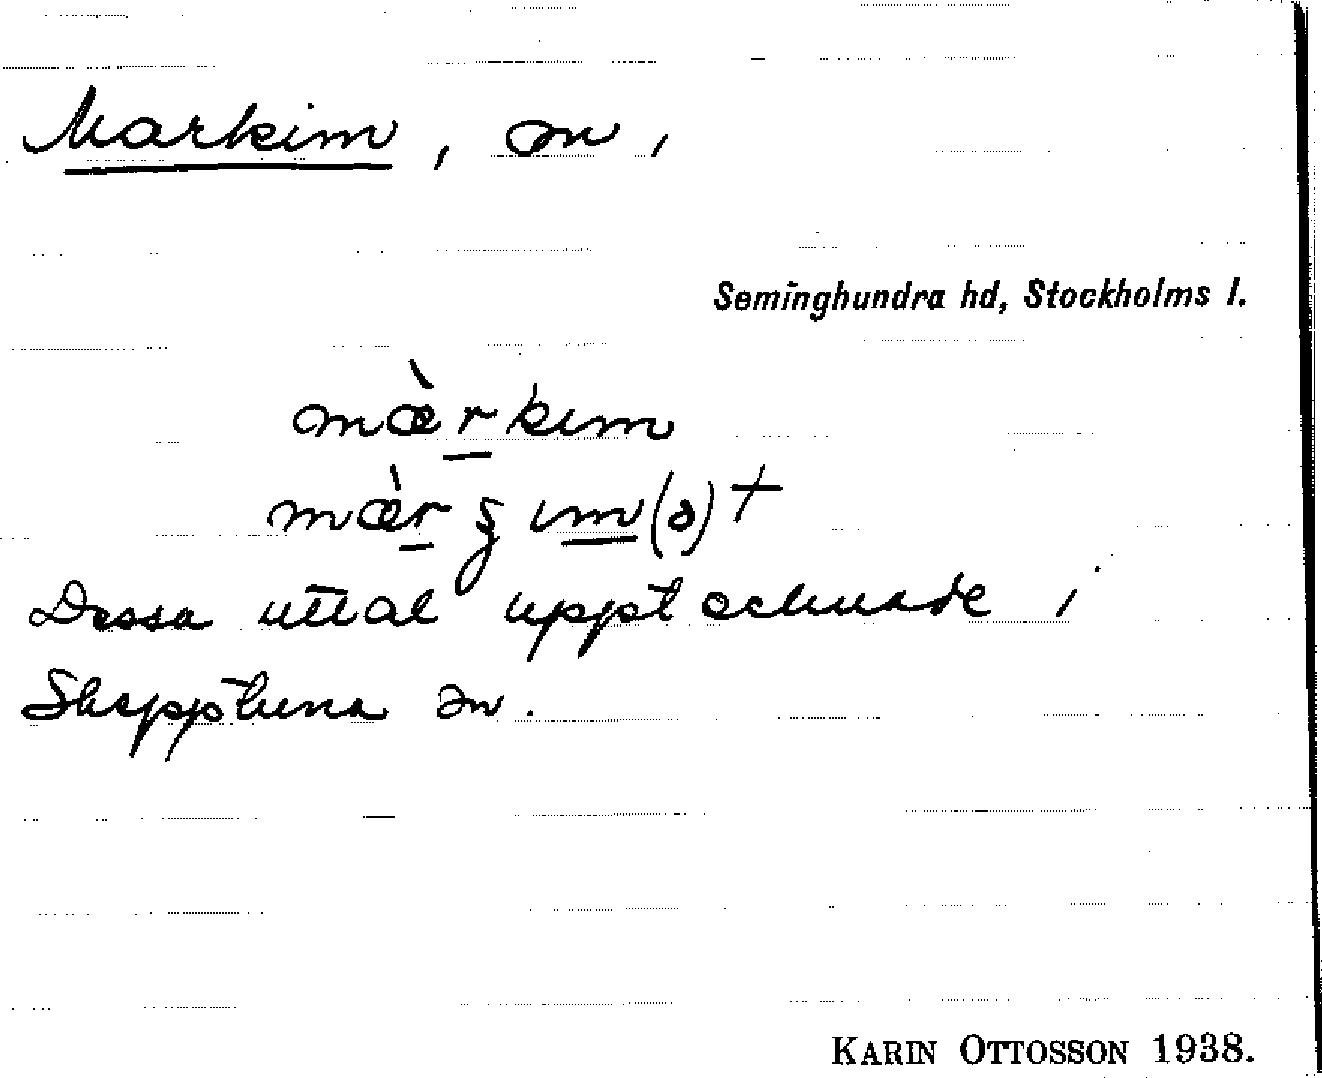 Markim, sn,
Seminghundra hd, Stockholms l.
mæ̀rkım
mæ̀r ȷım(ə)†
Dessa uttal upptecknade i
Skepptuna sn.
KARIN OTTOSSON 1938.